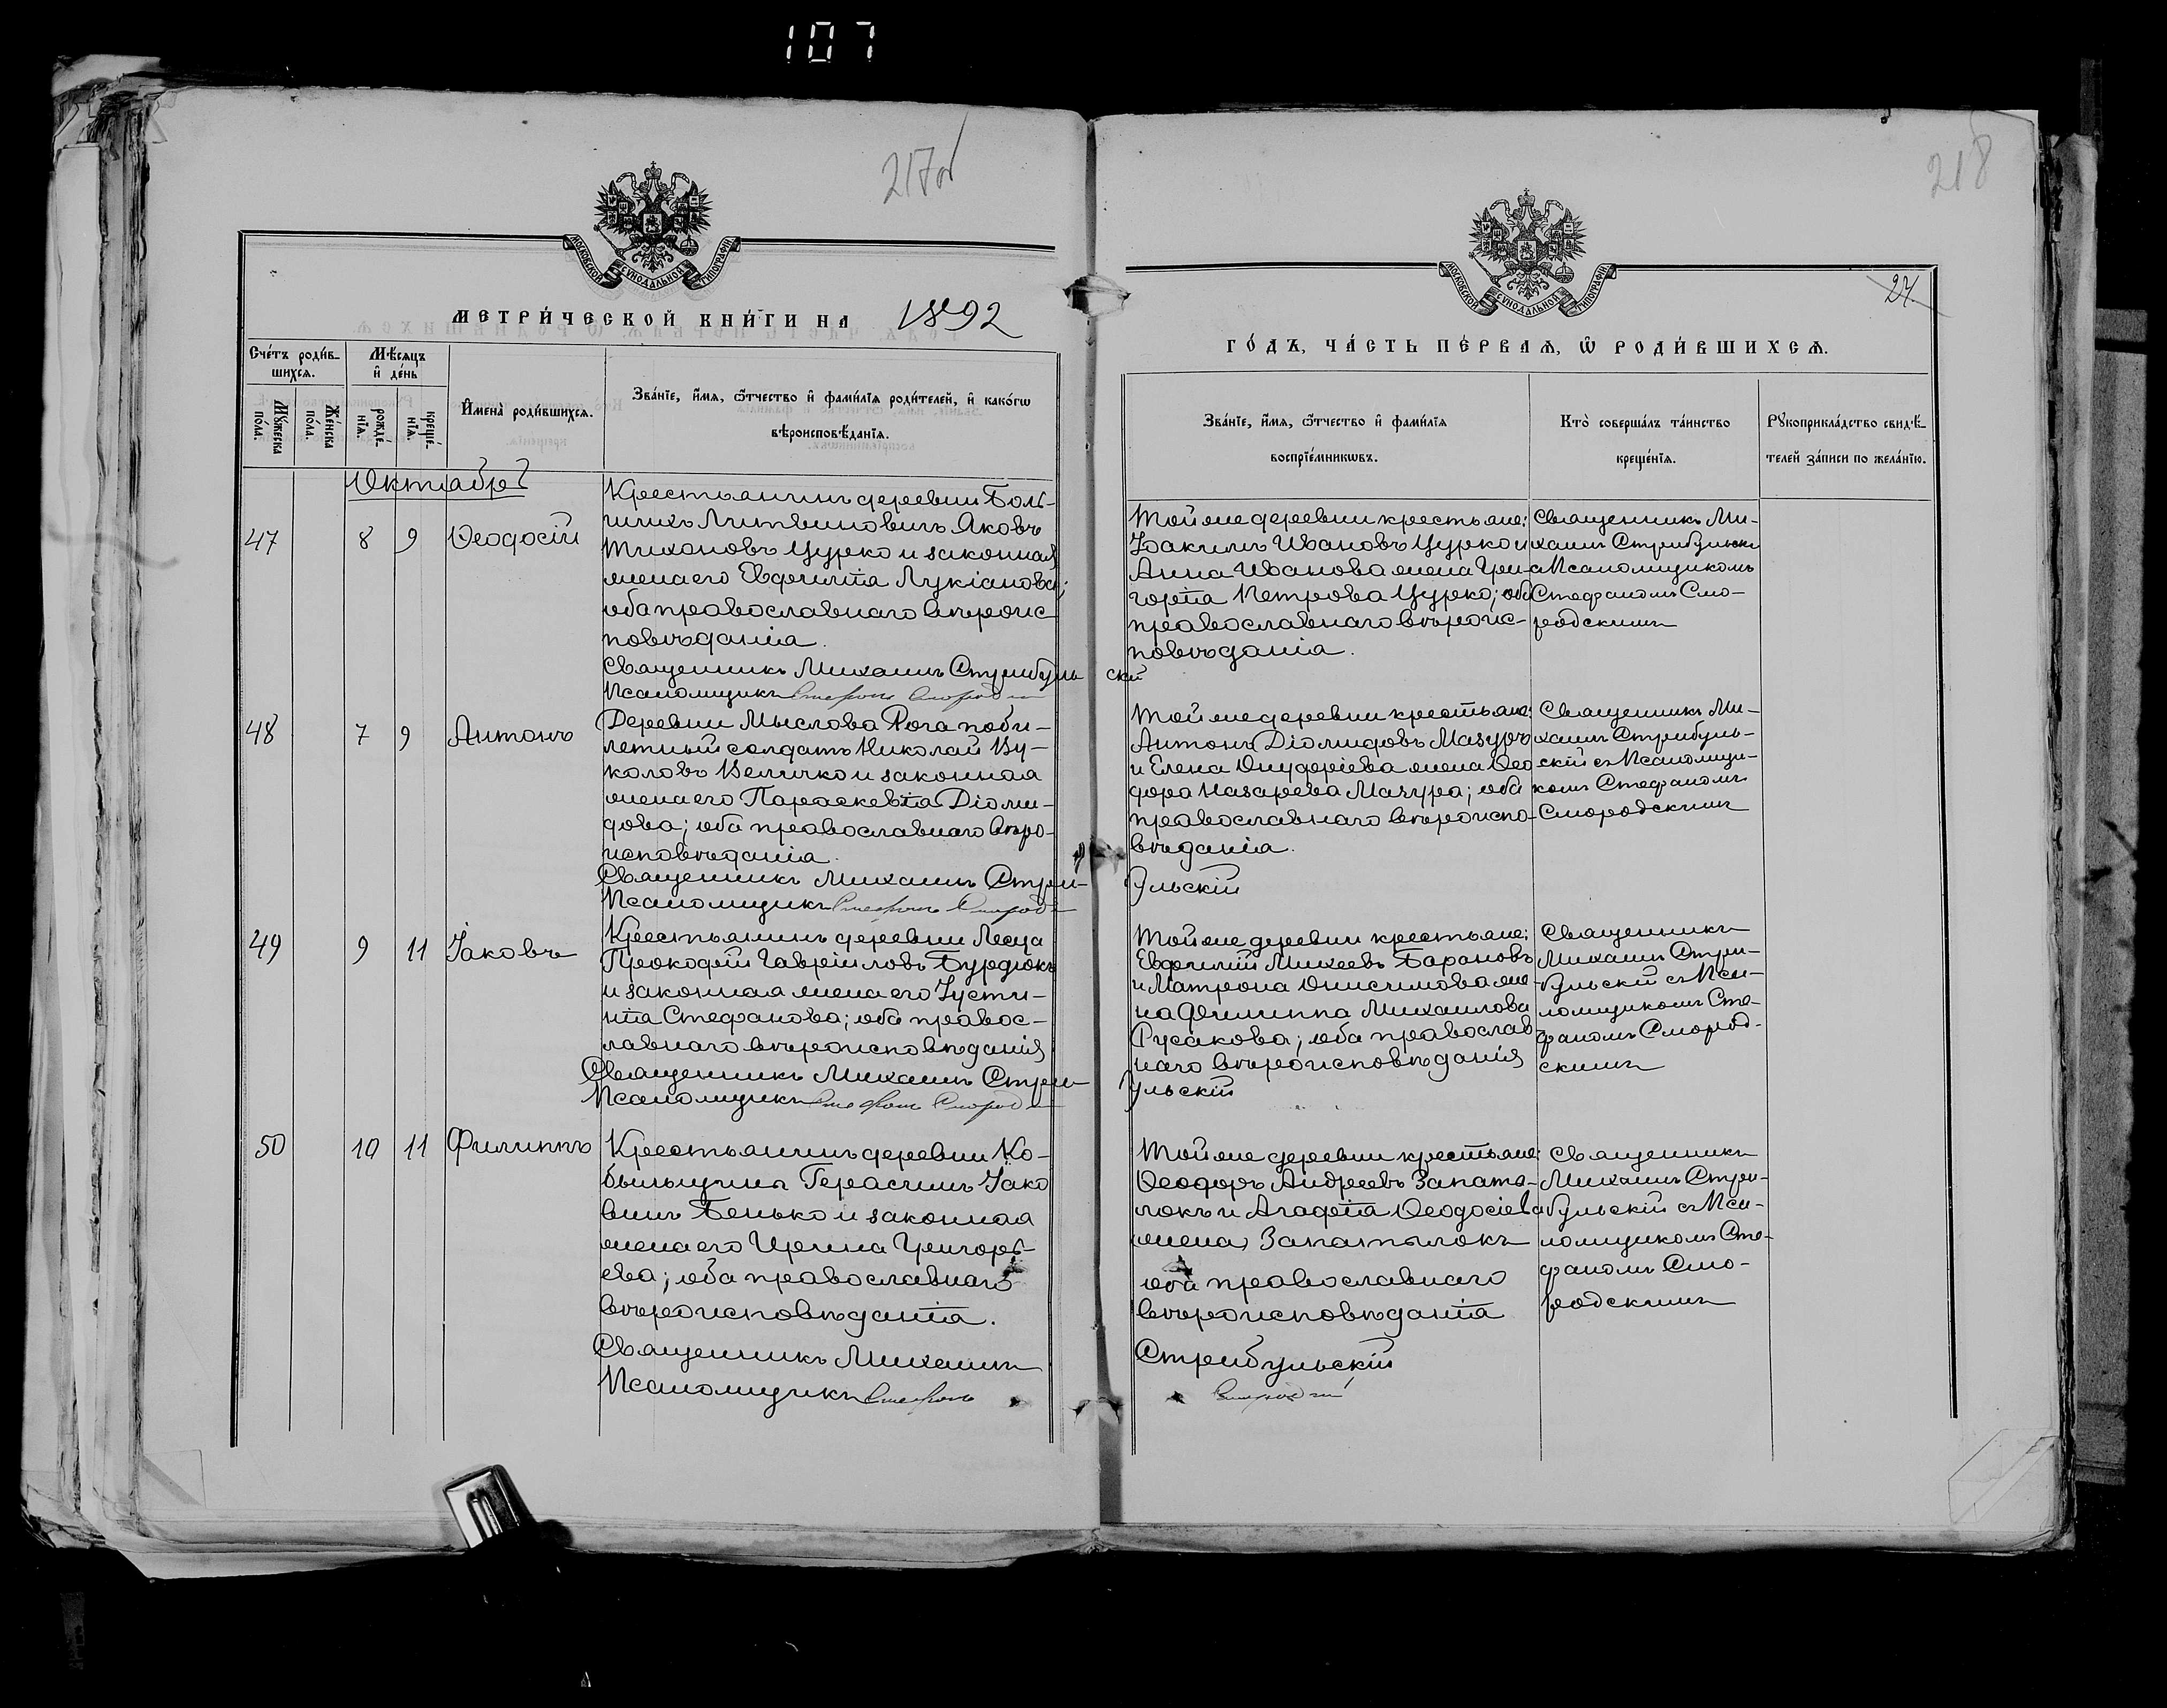 107
217об
218
МОСКОВСКОЙ СѴНОДАЛЬНОЙ ТИПОГРАФІИ
МОСКОВСКОЙ СѴНОДАЛЬНОЙ ТИПОГРАФІИ
24.
МЕТРИ́ЧЕСКОЙ КНИ́ГИ НА 1892
ГО́ДЪ, ЧА́СТЬ ПЕ́РВАѦ, Ѿ РОДИ́ВШИХСѦ.
Сче́тъ роди́в-
шихсѧ.
Мꙋ́жеска по́ла.
Же́нска по́ла.
Мѣ́сѧцъ
и҆ де́нь
рожде́-
нїѧ.
креще́-
нїѧ.
И҆мена̀ роди́вшихсѧ.
Зва́нїе, и҆́мѧ, ѻ҆́тчество и҆ фами́лїѧ роди́телей, и҆ како́гѡ
вѣроисповѣ́данїѧ.
Зва́нїе, и҆́мѧ, ѻ҆́тчество и҆ фами́лїѧ
воспрїе́мникѡвъ.
Кто̀ соверша́лъ та́инство
креще́нїѧ.
Рꙋкоприкла́дство свидѣ́-
телей за́писи по жела́нїю.
Октябрь
47
8 9
Ѳеодосій
Крестьянинъ деревни Боль-
шихъ Литвиновичъ Яковъ
Тихоновъ Цурко и законная
жена его Евфимія Лукіанова;
оба православнаго вѣроис-
повѣданія.
Священникъ Михаилъ Стрибульскій
Псаломщикъ Стефанъ
Тойже деревни крестьяне:
Іоакимъ Ивановъ Цурко и
Анна Иванова жена Гри-
горія Петрова Цурко; оба
православнаго вѣроис-
повѣданія.
Священникъ Ми-
хаилъ Стрибульскій
съ Псаломщикомъ
Стефаномъ Смо-
родскимъ
48
7 9
Антонъ
Деревни Мыслова Рога
солдатъ Николай Ву-
коловъ Величко и законная
жена его Параскевія Діоми-
дова; оба православнаго вѣро-
исповѣданія.
Священникъ Михаилъ Стриб
ульскій
Псаломщикъ Стефанъ
Тойже деревни крестьяне:
Антонъ Діомидовъ Мазуръ
и Елена Онуфріева жена Ѳео
дора Назарева Мазура; оба
православнаго вѣроиспо-
вѣданія.
Священникъ Ми-
хаилъ Стрибуль-
скій съ Псаломщи-
комъ Стефаномъ
Смородскимъ
49
9 11
Іаковъ
Крестьянинъ деревни Лесца
Прокофій Гавріиловъ Бурдюкъ
и законная жена его Іусти-
нія Стефанова; оба правос-
лавнаго вѣроисповѣданія
Священникъ Михаилъ Стриб
ульскій
Псаломщикъ Стефанъ
Тойже деревни крестьяне:
Евфимій Михеевъ Барановъ
и Матрона Онисимова же-
на Филиппа Михаилова
Русакова; оба православ-
наго вѣроисповѣданія
Священникъ
Михаилъ Стри-
бульскій съ Пса-
ломщикомъ Сте-
фаномъ Смород-
скимъ
50
10 11
Филиппъ
Крестьянинъ деревни Ко-
быльщина Герасимъ Іако
влевъ Бенько и законная
жена его Ирина Григорь-
ева; оба православнаго
вѣроисповѣданія.
Священникъ Михаилъ
Стрибульскій
Псаломщикъ Стефанъ
Тойже деревни крестьяне:
Ѳеодоръ Андреевъ Запаты-
локъ и Агафія Ѳеодосіева
жена Запатылокъ
оба православнаго
вѣроисповѣданія
Священникъ
Михаилъ Стри-
бульскій съ Пса-
ломщикомъ Сте-
фаномъ Смо-
родскимъ